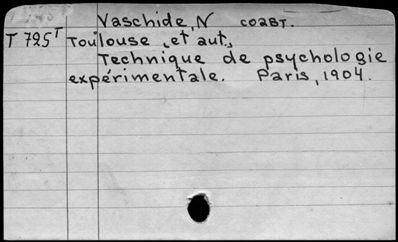 Vaschide, N соавт.
T 725ᵀ Toulouse, et aut.,
Technique de psychologie
expérimentale. Paris, 1904.